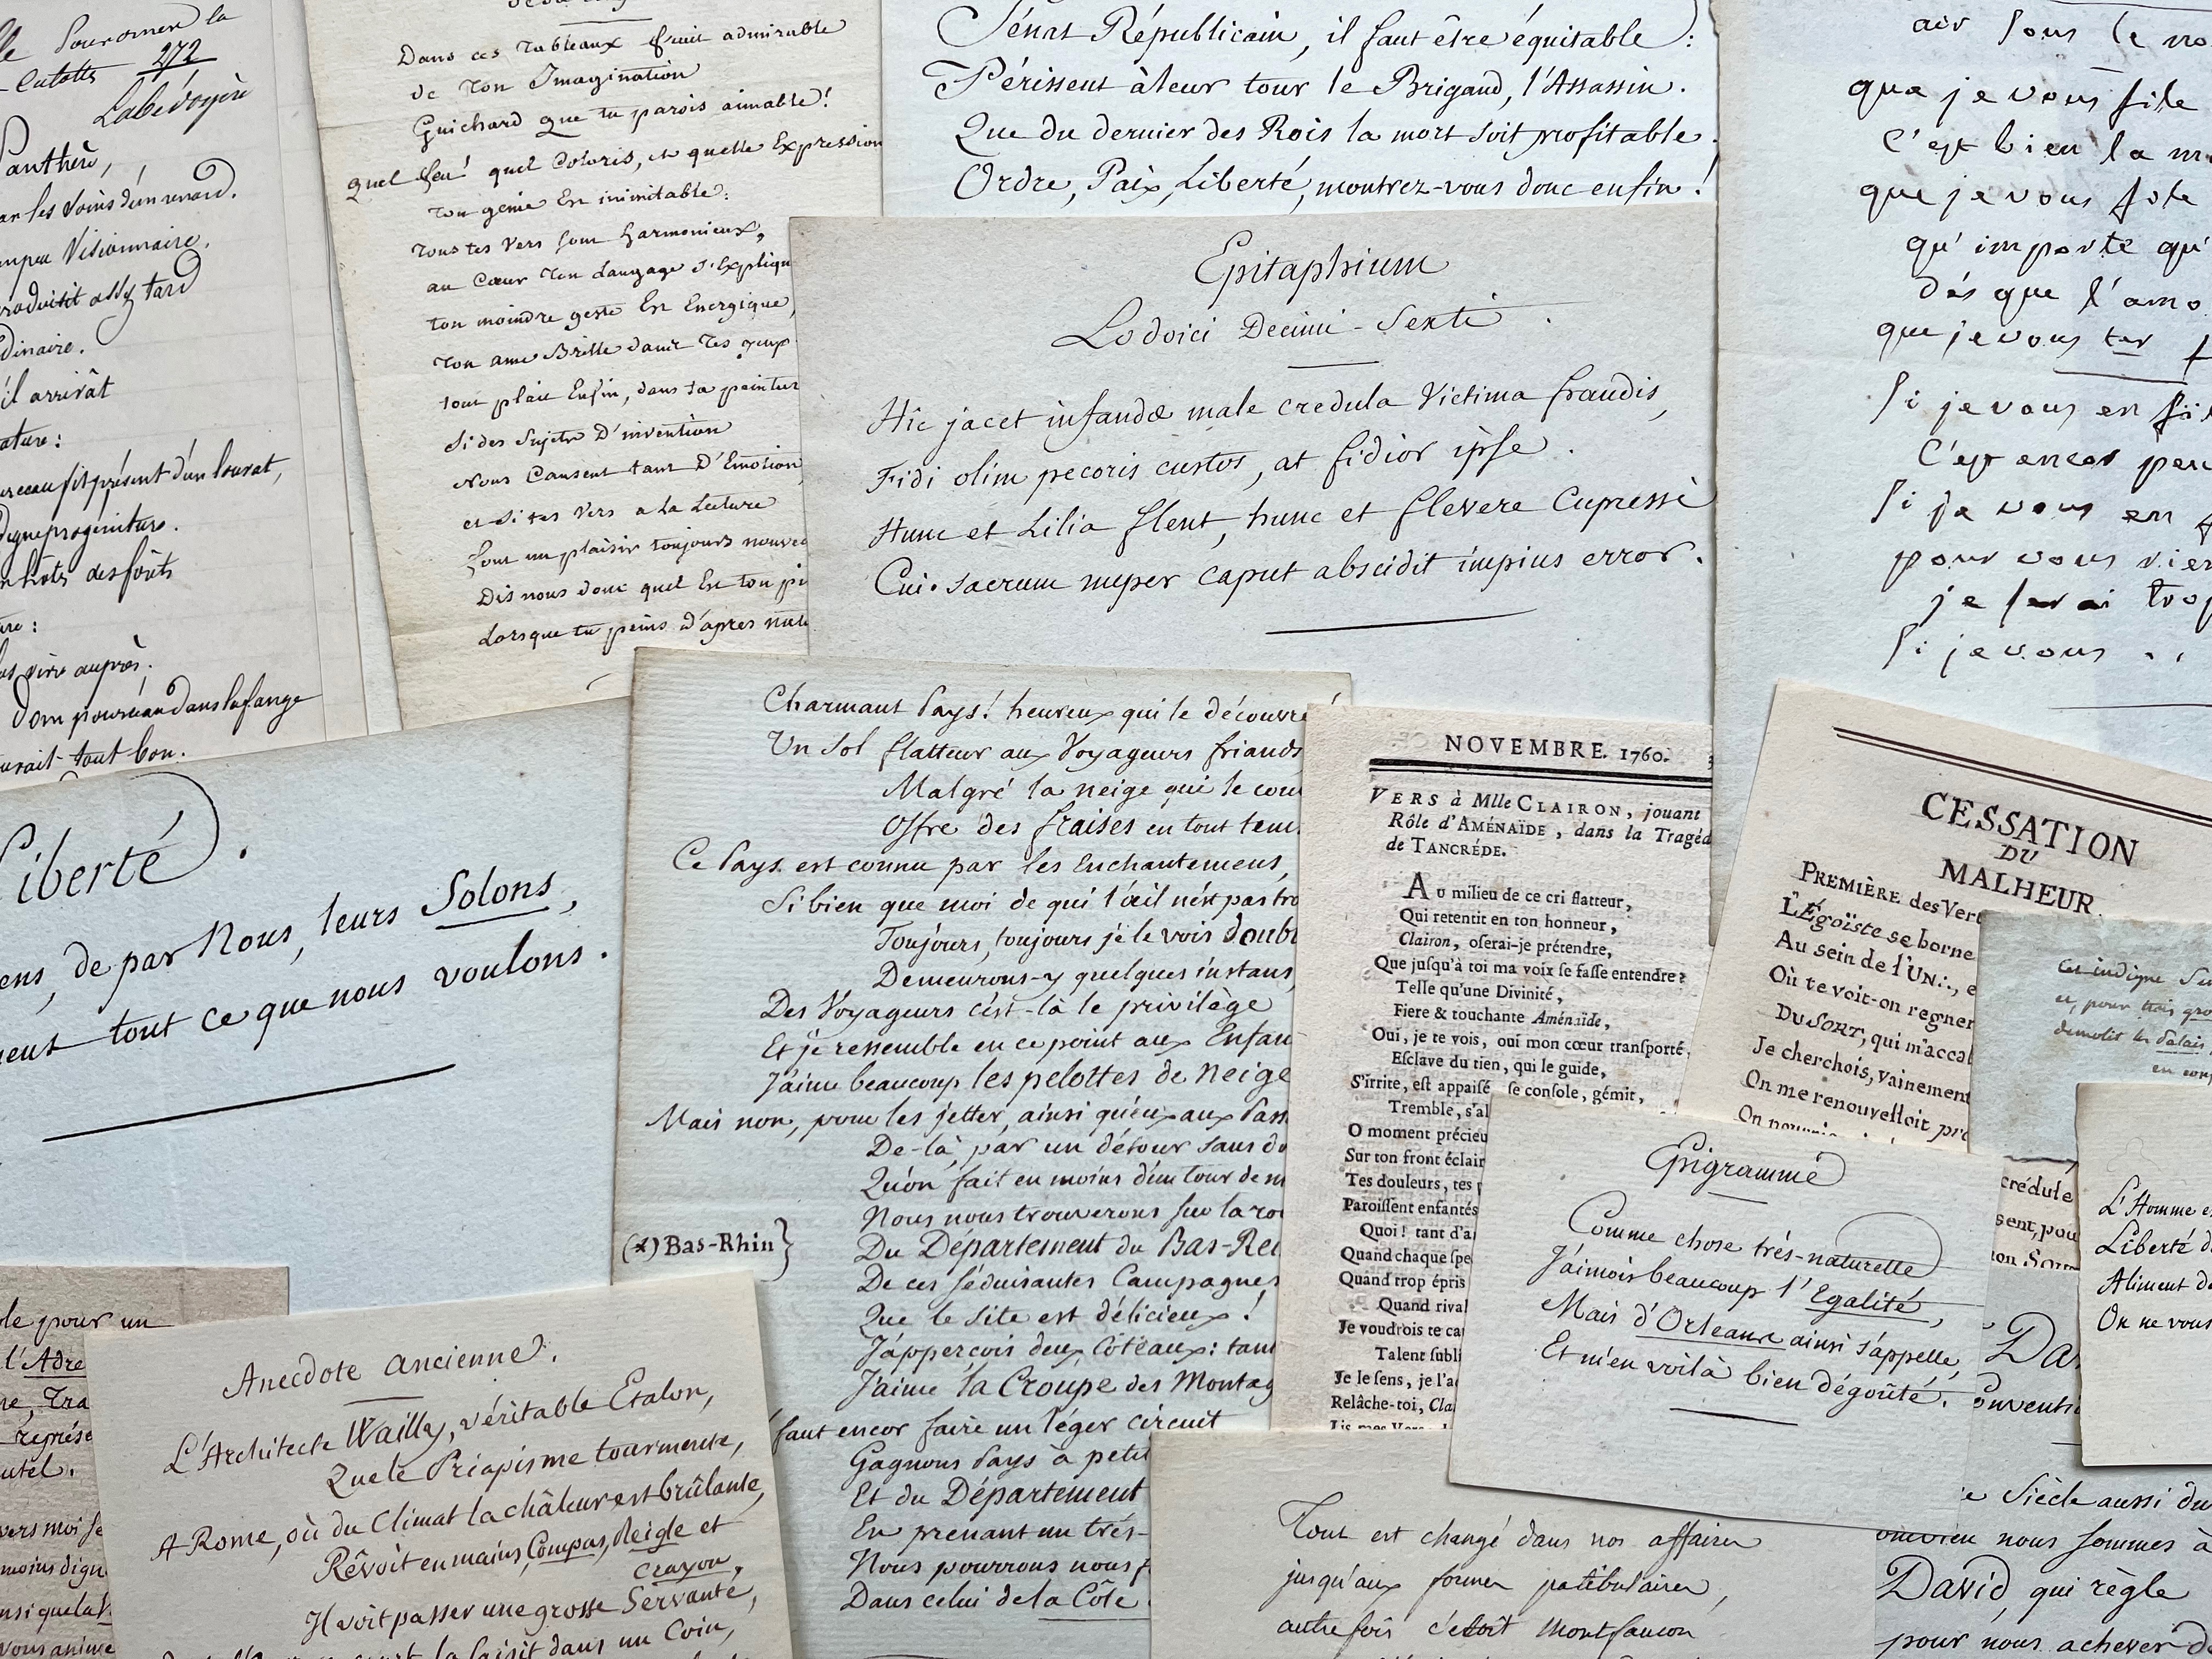 Pouromer la
272
Labédoyère
Panthère,
par les soins d'un renard.
un peu Visionnaire.
produisit assez tard
dinaire.
il arrivât
ature:
fit présent d'un
digne progéniture.
hôtes des forêts
vivre auprès;
Dom pourceau dans la fange
aurait tout bon.
Dans ces Tableaux fruit admirable
de ton Imagination
Guichard que tu parois aimable!
quel feu! quel Coloris, et quelle Expression
ton genie Est inimitable:
tous tes vers sont harmonieux,
au Cœur ton Langage s'Expliqu
ton moindre geste Est Energique,
ton ame Brille dans tes yeux
tout plait Enfin, dans ta peintur
Si des Sujets D'invention
Nous Causent tant D'Emotion
et Si tes vers a la Lecture
sont un plaisir toujours nouvea
Dis nous donc quel Est ton pi
Lorsque tu peins d'après natu
Sénat Républicain, il faut être équitable:
Périssent à leur tour le Brigand, l'Assassin.
Que du dernier des Rois la mort soit profitable.
Ordre, Paix, Liberté, montrez-vous donc enfin!
Epitaphium
Lodoici Decimi-Sexti.
Hic jacet infandæ male credula Victima fraudis,
Fidi olim pecoris custos, at fidior ipse.
Hunc et Lilia flent, hunc et flevere Cupressi
Cui sacrum nuper caput abscidit impius error.
air sous le no
que je vous file
C'est bien la m
que je vous fote
qu'importe qu'
dés que l'amo
que je vous ter
Si je vous en fi
C'est encor peu
Si je vous en
pour vous rien
je serai trop
Si je vous . .
Liberté.
ens, de par Nous, leurs Solons,
ent tout ce que nous voulons.
Charmant Pays! heureux qui le découvre!
Un Sol flatteur aux Voyageurs friands
Malgré la neige qui le cou
Offre des fraises en tout tems
Ce Pays est connu par les Enchantemens,
Si bien que moi de qui l'œil n'est pas tro
Toujours, toujours je le vois doubl
Demeurons-y quelques instans,
Des Voyageurs c'est-là le privilège
Et je ressemble en ce point aux Enfan
J'aime beaucoup les pelottes de Neige
Mais non, pour les jetter, ainsi qu'eux aux Pass
De-là, par un détour sans do
Qu'on fait en moins d'un tour de m
Nous nous trouverons sur la ro
(*) Bas-Rhin} Du Département du Bas-Rei
De ces séduisantes Campagnes
Que le site est délicieux!
J'apperçois deux Côteaux: tant
J'aime la Croupe des Montag
faut encor faire un léger circuit
Gagnons Pays à petit
Et du Département
En prenant un très-
Nous pourrons nous
Dans celui de la Côte
NOVEMBRE. 1760.
VERS à Mlle CLAIRON, jouant
Rôle d'AMÉNAÏDE, dans la Tragéd
de TANCRÉDE.
AU milieu de ce cri flatteur,
Qui retentit en ton honneur,
Clairon, oserai-je prétendre,
Que jusqu'à toi ma voix se fasse entendre?
Telle qu'une Divinité,
Fiere & touchante Aménaïde,
Oui, je te vois, oui mon cœur transporté,
Esclave du tien, qui le guide,
S'irrite, est appaisé se console, gémit,
Tremble, s'al
O moment précieu
Sur ton front éclair
Tes douleurs, tes
Paroissent enfantés
Quoi! tant d'a
Quand chaque spe
Quand trop épris
Quand rival
Je voudrois te ca
Talent subli
Je le sens, je l'a
Relâche-toi, Cla
Lis mes Vers
CESSATION
DU
MALHEUR.
PREMIÈRE des Vert
L'Égoïste se borne
Au sein de l'UN∴, e
Où te voit-on regner
DU SORT, qui m'accabl
Je cherchois, vainement
On me renouvelloit pro
On
Cet indigne
et, pour trois gro
démolit les Palais
en con
crédule
sent, pou
on Sou
L'Homme e
Liberté d
Aliment de
On ne vous
Epigramme
Comme chose très-naturelle
J'aimois beaucoup l'Egalité,
Mais d'Orléans ainsi s'appelle,
Et m'en voilà bien dégoûté.
Da
onventi
Siècle aussi du
nous sommes à
David, qui règle
pour nous achever d
ole pour un
l'Adre
ne, Tra
représe
utel.
vers moi se
moins dign
insi que la
vous anime
Anecdote ancienne.
L'Architecte Wailly, véritable Etalon,
Que le Priapisme tourmente,
A Rome, où du Climat la châleur est brûlante,
Rêvoit en mains Compas, Reigle et
crayon,
Il voit passer une grosse Servante,
la saisit dans un Coin,
Tout est changé dans nos affaires
jusqu'aux formes patibulaires,
autrefois c'étoit Montfaucon